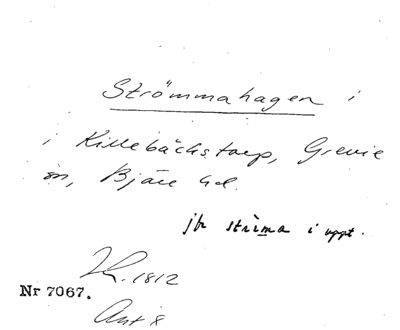 Strömmahagen i
i Killebäckstorp, Grevie
sn, Bjäre hd.
jfr strìma i uppt.
1812
Nr 7067.